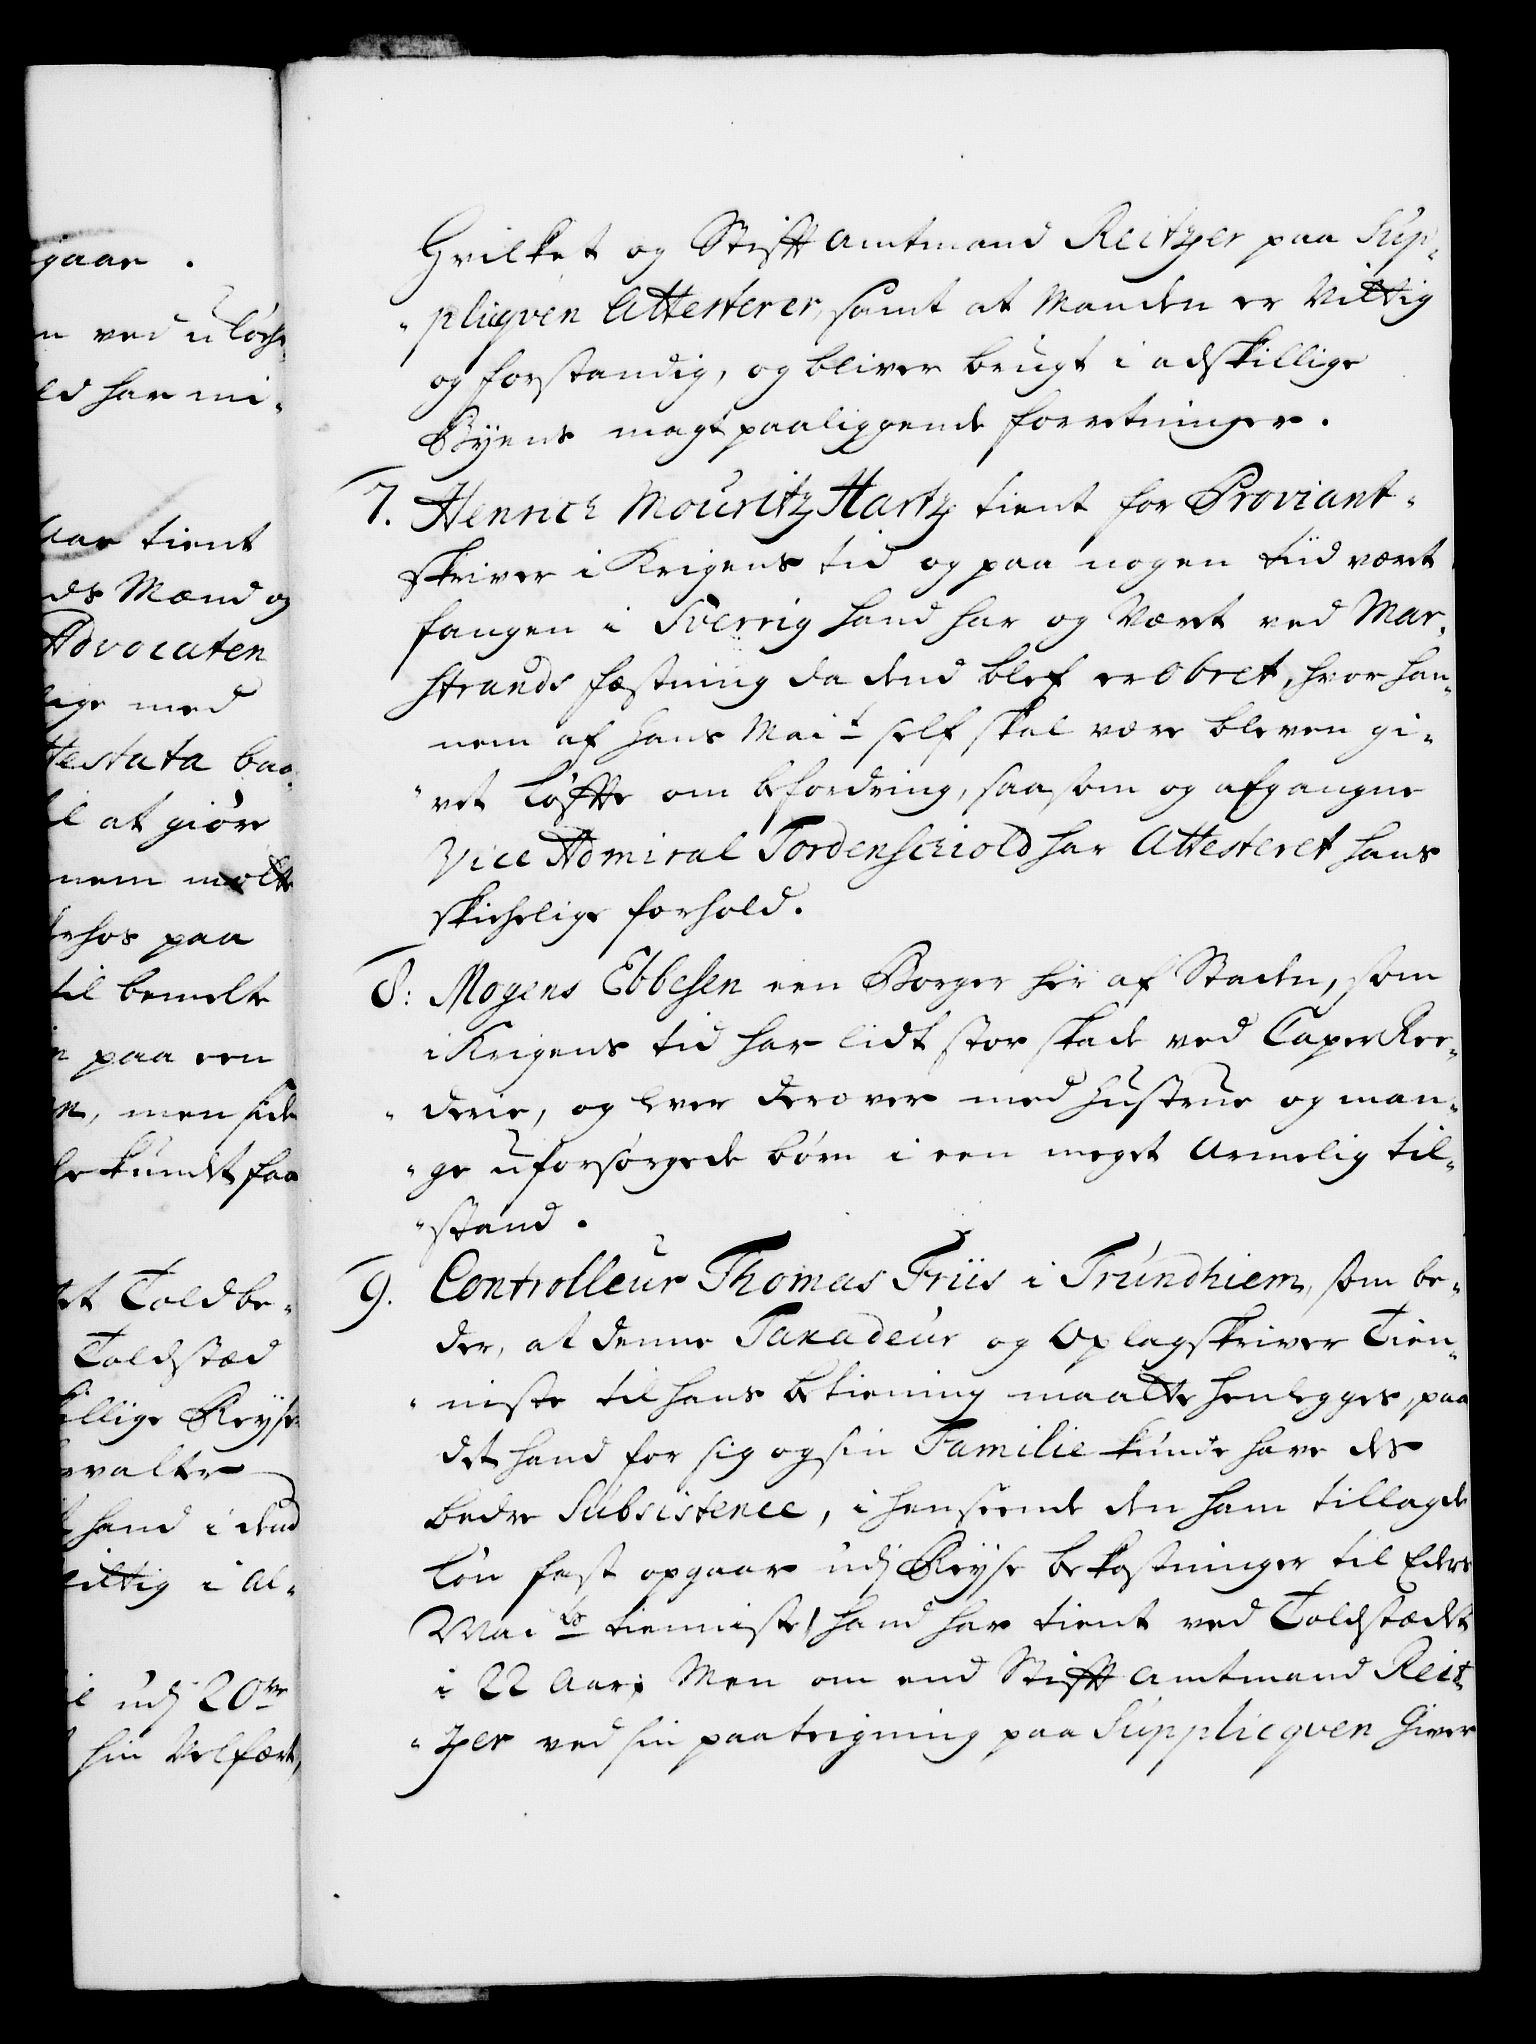 gaar.
n ved uløche
ld har mi-
Aar tient
ds Mænd og
Advocaten
lige med
testata baa
l at giøre
nem motte
erhos paa
til bemelte
paa een
men side
kundet faa
et Toldbe-
Toldstæd
killige Reyse
evalte
hand i dend
vittig i Al-
il udj 20ve
sin Velfært,
Hvilket og Stifft Amtmand Reitzer paa Sup-
pliqven Attesterer, samt at Manden er Vittig
og forstandig, og bliver brugt i adskillige
Byens magtpaaliggende forretninger.
7. Henrich Mouritz Hartz tient for Proviant-
skriver i Krigens tid og paa nogen tiid vært
fangen i Sverrig hand har og Vært ved Mar-
strands fæstning da dend blef erobret, hvor han-
nem af hans Mait self skal være bleven gi-
vet løffte om befordring, saasom og afgangne
Vice Admiral Tordenschiold har Attesteret hans
skichelige forhold.
8: Mogens Ebbesen een Borger hér af Staden, som
i Krigens tid har lidt stor skade ved Caper Ree-
derie, og lever derover med Hustrue og man-
ge uforsørgede børn i een meget Armelig til-
stand.
9. Controlleur Thomas Friis i Trundhiem, som be-
der, at denne Taxadeur og Oplagskriver Tien-
niste til hans betiening maatte henlegges, paa
det hand for sig og sin Familie kunde have des
bedre Subsistence, i henseende den ham tillagde
løn fast opgaar udj Reyse bekostninger til Eders
Maits tienniste, hand har tient ved Toldstædet
i 22 Aar; Men om end Stifft Amtmand Reit-
zer ved sin paategning paa Supplicqven giver